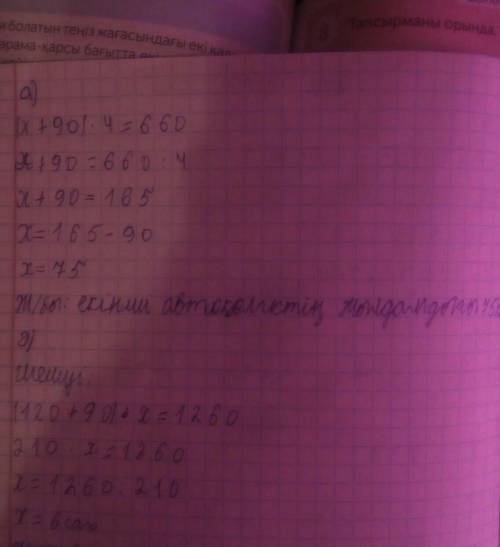 болатын теңіз жағасындағы екі
қарама-қарсы бағытта екі
8 Тапсырманы орында.
а)
(x+90)·4=660
x+90=660:4
x+90=165
x=165-90
x=75
Ж/бы: екінші автокөліктің жылдамдығы 75
ә)
Шешуі:
(120+90)·x=1260
210·x=1260
x=1260:210
x=6сағ